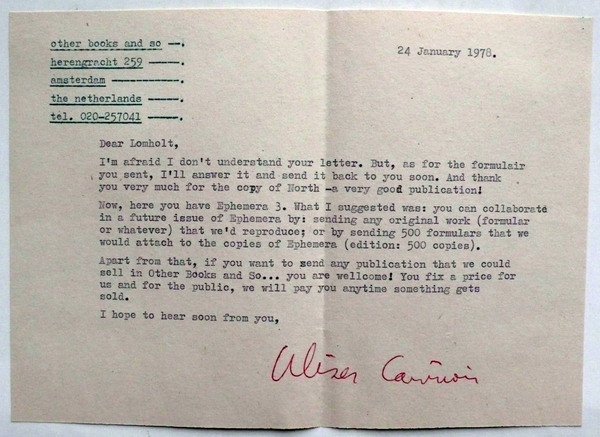 other books and so —.
herengracht 259 ——.
amsterdam ————.
the netherlands ——.
tel. 020-257041 ——.
24 January 1978.
Dear Lomholt,
I'm afraid I don't understand your letter. But, as for the formulair
you sent, I'll answer it and send it back to you soon. And thank
you very much for the copy of North -a very good publication!
Now, here you have Ephemera 3. What I suggested was: you can collaborate
in a future issue of Ephemera by: sending any original work (formular
or whatever) that we'd reproduce; or by sending 500 formulars that we
would attach to the copies of Ephemera (edition: 500 copies).
Apart from that, if you want to send any publication that we could
sell in Other Books and So... you are welcome! You fix a price for
us and for the public, we will pay you anytime something gets
sold.
I hope to hear soon from you,
Ulises Carrión